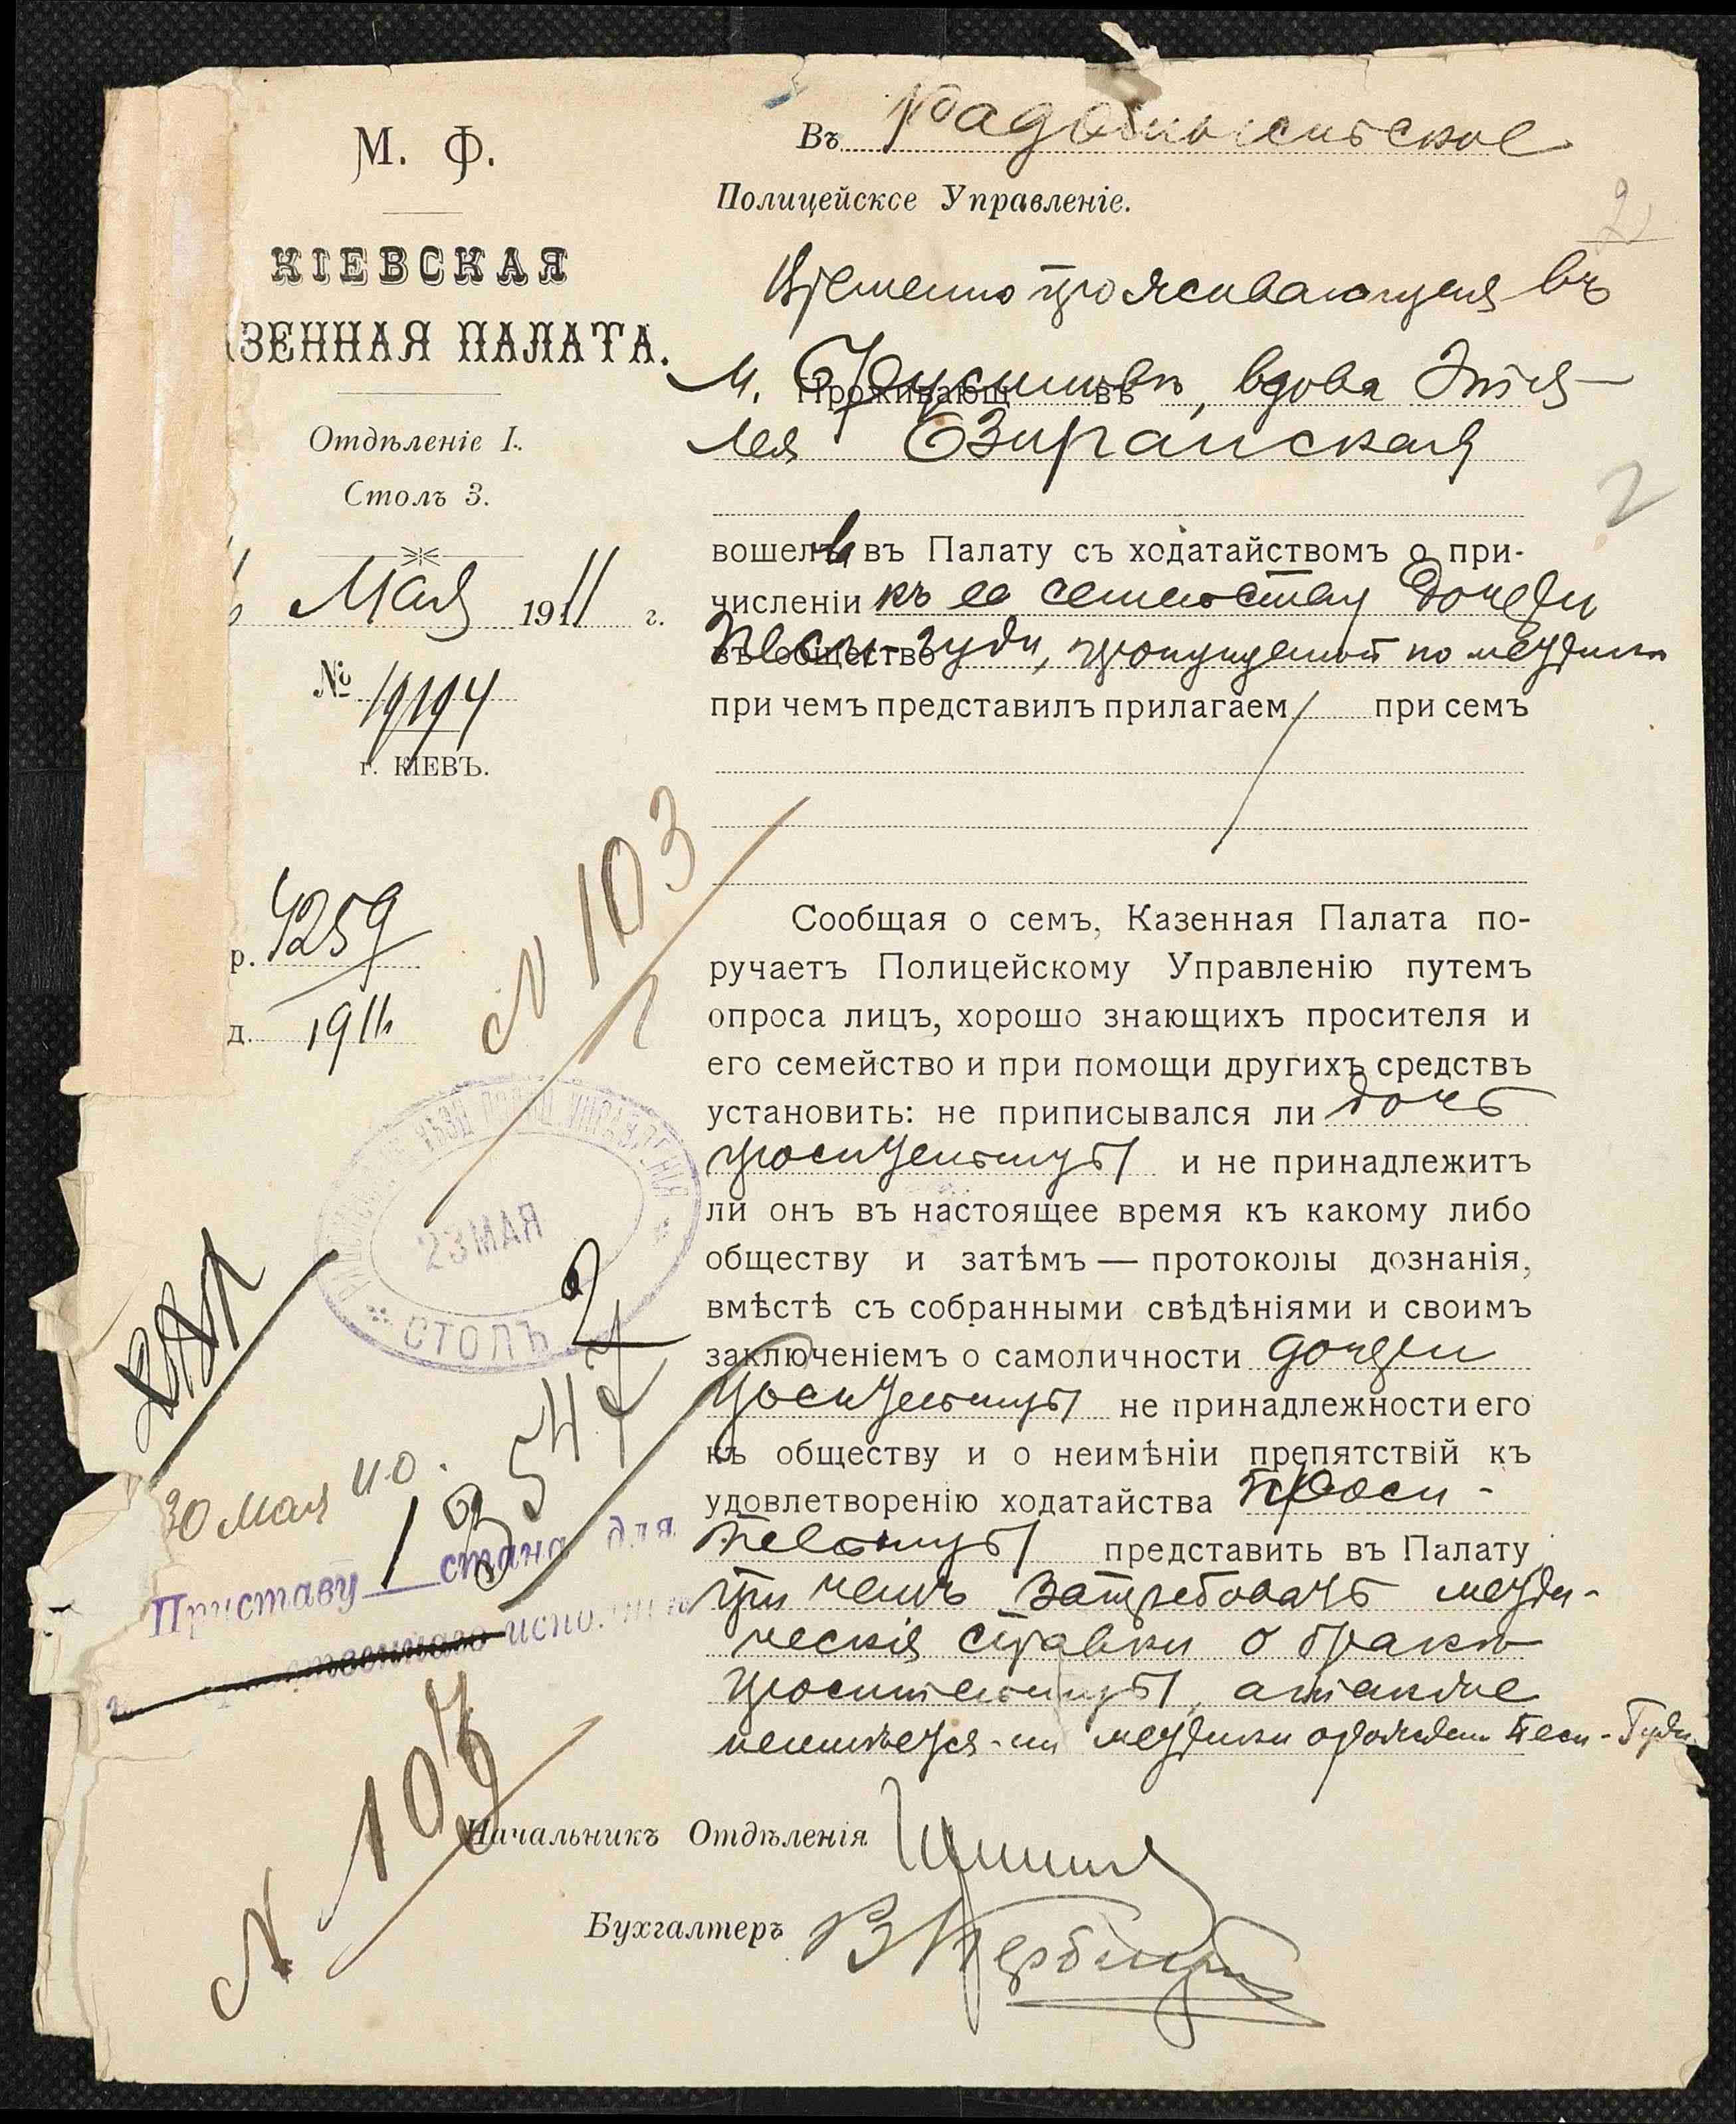 М. Ф.
КІЕВСКАЯ
АЗЕННАЯ ПАЛАТА.
Отдѣленіе I.
Столъ 3.
Мая 1911 г.
№ 19194
г. КІЕВЪ.
р. 4259
д. 1911
Въ Радомысльское
Полицейское Управленіе.
2
Временно проживающая въ
Проживающ въ
м. Брусиловѣ, вдова Этля-
Лея Озиранская
2
вошела въ Палату съ ходатайствомъ о при-
численіи къ ея семейству дочери
въ общество
Песи-Гуди, пропущенной по метрикѣ
при чемъ представилъ прилагаем при семъ
Сообщая о семъ, Казенная Палата по-
ручаетъ Полицейскому Управленію путемъ
опроса лицъ, хорошо знающихъ просителя и
его семейство и при помощи другихъ средствъ
установить: не приписывался ли дочь
просительницы и не принадлежитъ
ли онъ въ настоящее время къ какому либо
обществу и затѣмъ — протоколы дознанія,
вмѣстѣ съ собранными свѣдѣніями и своимъ
заключеніемъ о самоличности дочери
просительницы не принадлежности его
къ обществу и о неимѣніи препятствій къ
удовлетворенію ходатайства проси-
тельницы представить въ Палату
при чемъ затребовать метри-
ческія справки о бракѣ
просительницы, а также
неимѣется-ли метрики о рожденіи Песи-Гуди.
N 103
УѢЗД. ПОЛИЦ. УПРАВЛЕНІЯ
23 МАЯ
СТОЛЪ 2
13547
30 мая
Приставу 1 стана для
исполненія
N 107
Начальникъ Отдѣленія
Бухгалтеръ